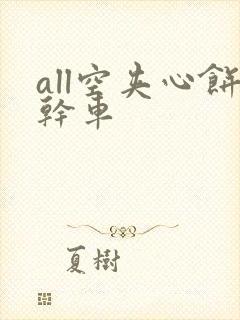 all空夹心餅
幹車
夏樹